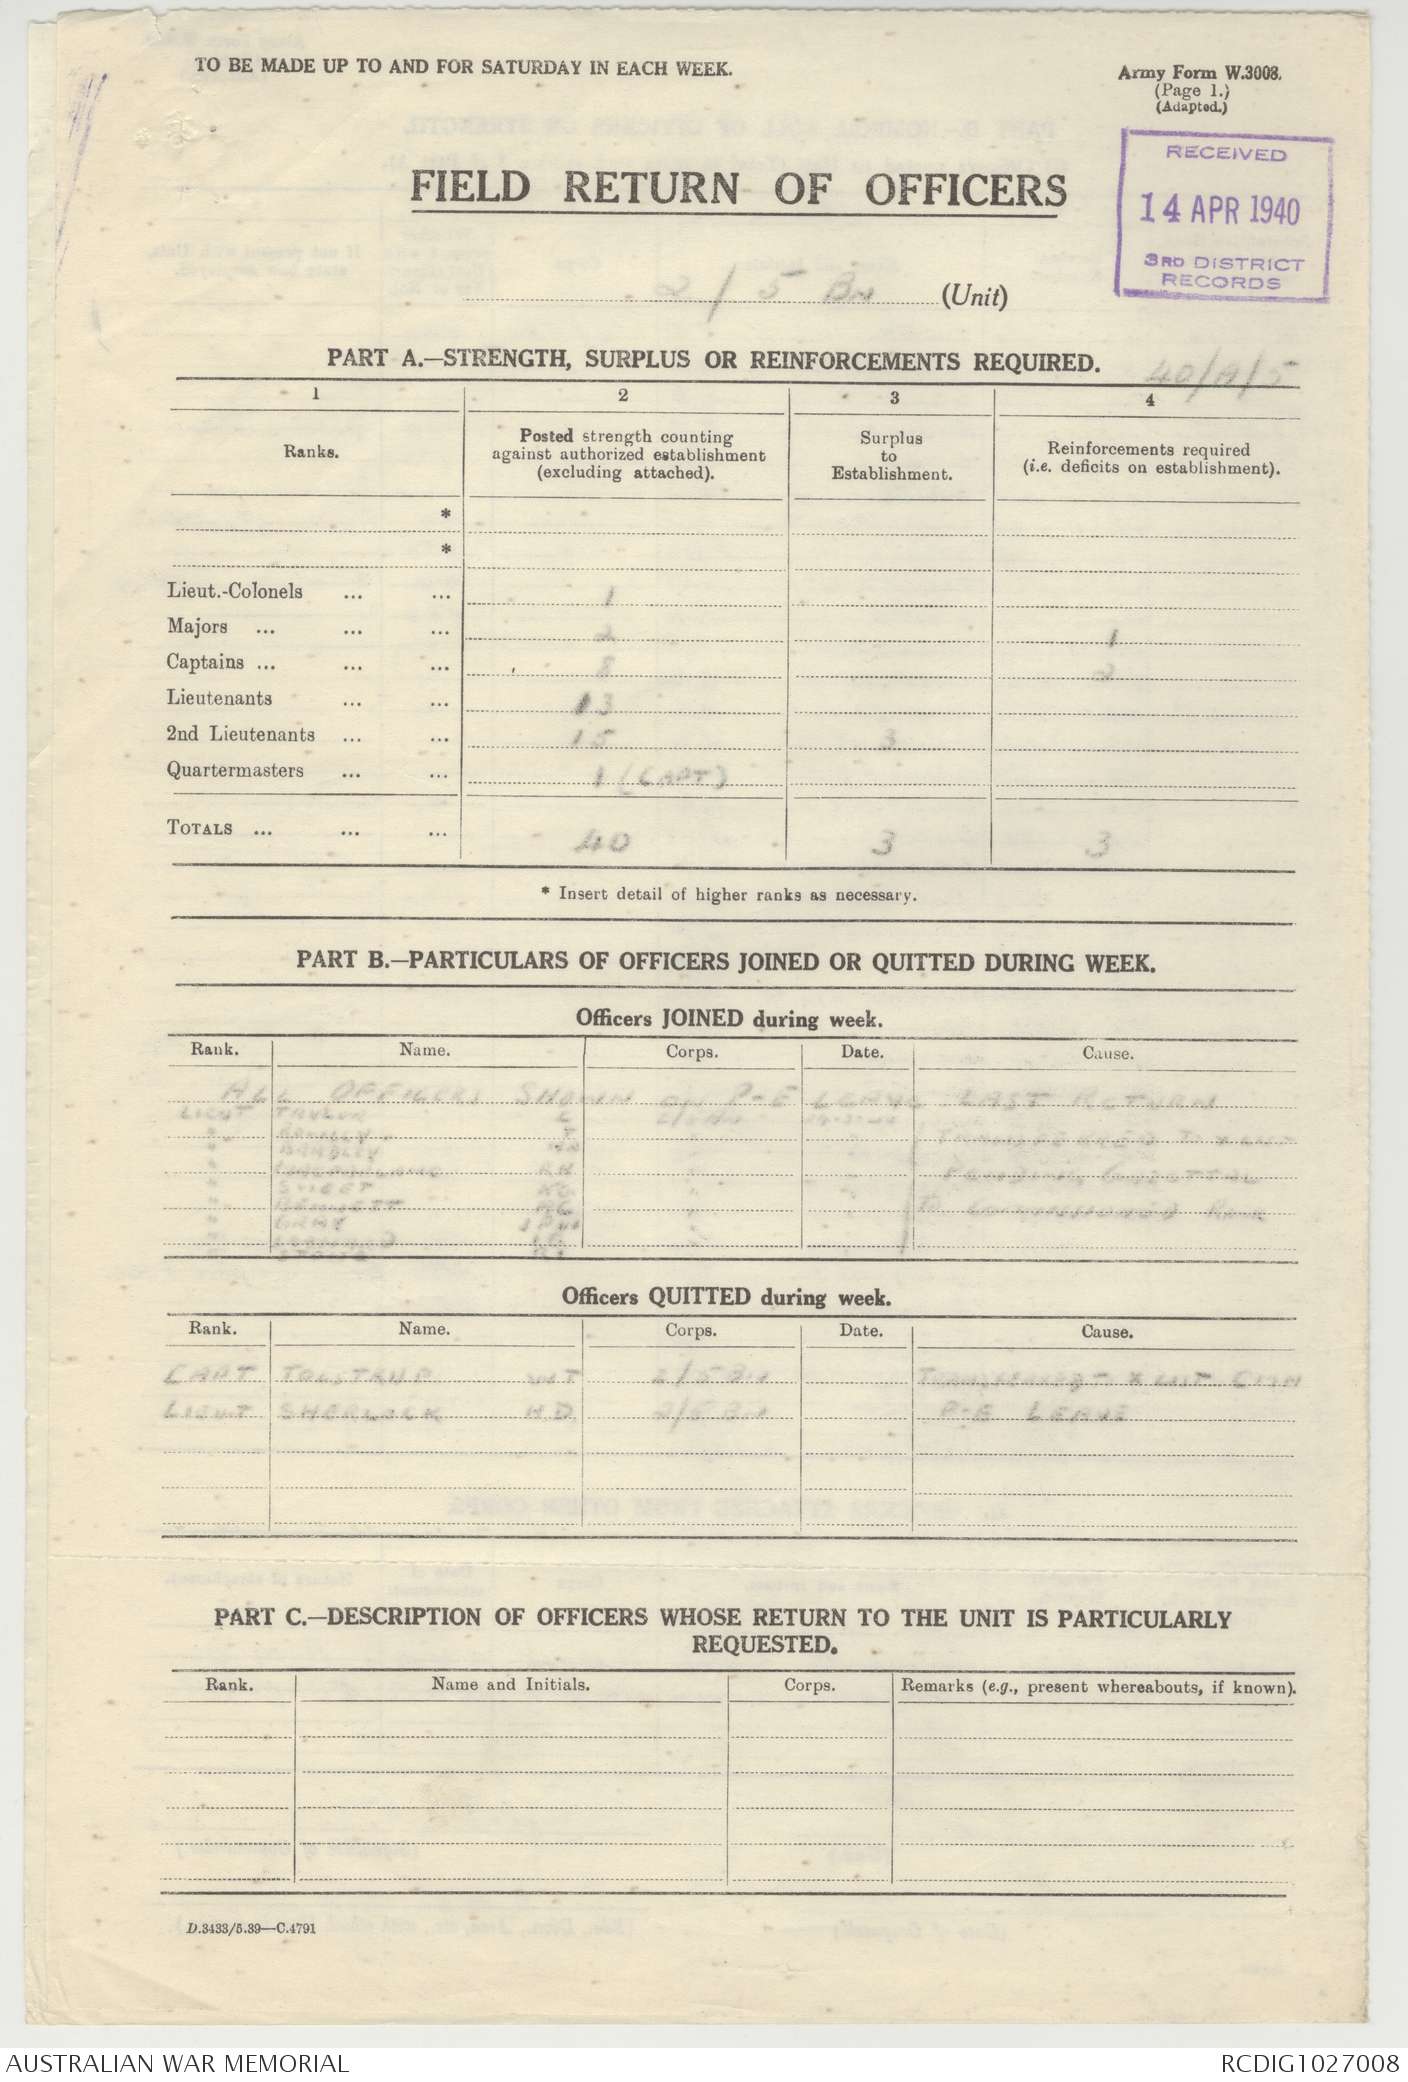 TO BE MADE UP TO AND FOR SATURDAY IN EACH WEEK.
Army Form W.3008.
(Page 1.)
(Adapted.)
RECEIVED
14 APR 1940
3RD DISTRICT
RECORDS
FIELD RETURN OF OFFICERS
2/5 Bn (Unit)
PART A.—STRENGTH, SURPLUS OR REINFORCEMENTS REQUIRED.
40/A/5
1 2 3 4
Ranks.
Posted strength counting
against authorized establishment
(excluding attached).
Surplus
to
Establishment.
Reinforcements required
(i.e. deficits on establishment).
*
*
Lieut.-Colonels ... ... 1
Majors ... ... ... 2 1
Captains ... ... ... 8 2
Lieutenants ... ... 13
2nd Lieutenants ... ... 15 3
Quartermasters ... ... 1 (CAPT)
TOTALS ... ... ... 40 3 3
* Insert detail of higher ranks as necessary.
PART B.—PARTICULARS OF OFFICERS JOINED OR QUITTED DURING WEEK.
Officers JOINED during week.
Rank. Name. Corps. Date. Cause.
ALL OFFICERS SHOWN ON P-E LEAVE LAST RETURN
LIEUT TAYLOR E 2/5 Bn
" "
" BRADLEY "
" RH " PENDING
" SWEET KG "
" BENNETT AC " TO COMMISSIONED RANK
" GRAY "
"
"
Officers QUITTED during week.
Rank. Name. Corps. Date. Cause.
CAPT TOLSTRUP 2/5 BN
LIEUT SHERLOCK H.D. 2/5 BN P-E LEAVE
PART C.—DESCRIPTION OF OFFICERS WHOSE RETURN TO THE UNIT IS PARTICULARLY
REQUESTED.
Rank. Name and Initials. Corps. Remarks (e.g., present whereabouts, if known).
D.3433/5.39—C.4791
AUSTRALIAN WAR MEMORIAL RCDIG1027008